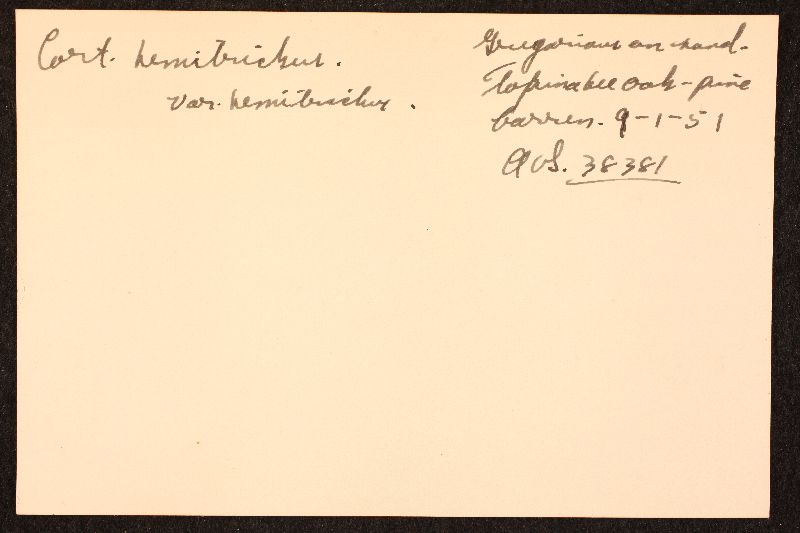 Cort. hemitrichus.
var. hemitrichus.
Gregarious on sand-
Topinabee oak-pine
barren. 9-1-51
AHS. 38381